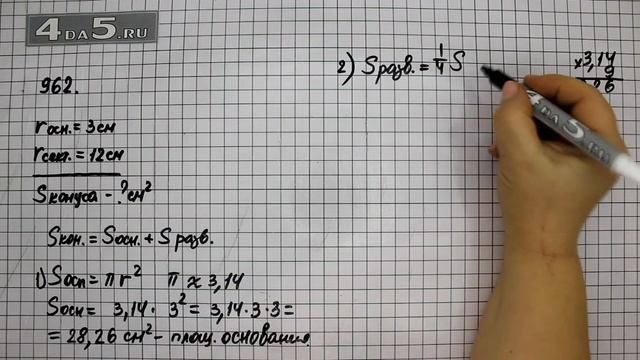 4 DA 5.RU
962.
rосн. = 3 см
rсект. = 12 см
Sконуса - ? см²
Sкон. = Sосн. + Sразв.
1) Sосн = πr² π ≈ 3,14
Sосн = 3,14 · 3² = 3,14 · 3 · 3 =
= 28,26 см² - площ. основания.
2) Sразв. = 1/4 S
× 3,14
9
26
4 DA 5.RU